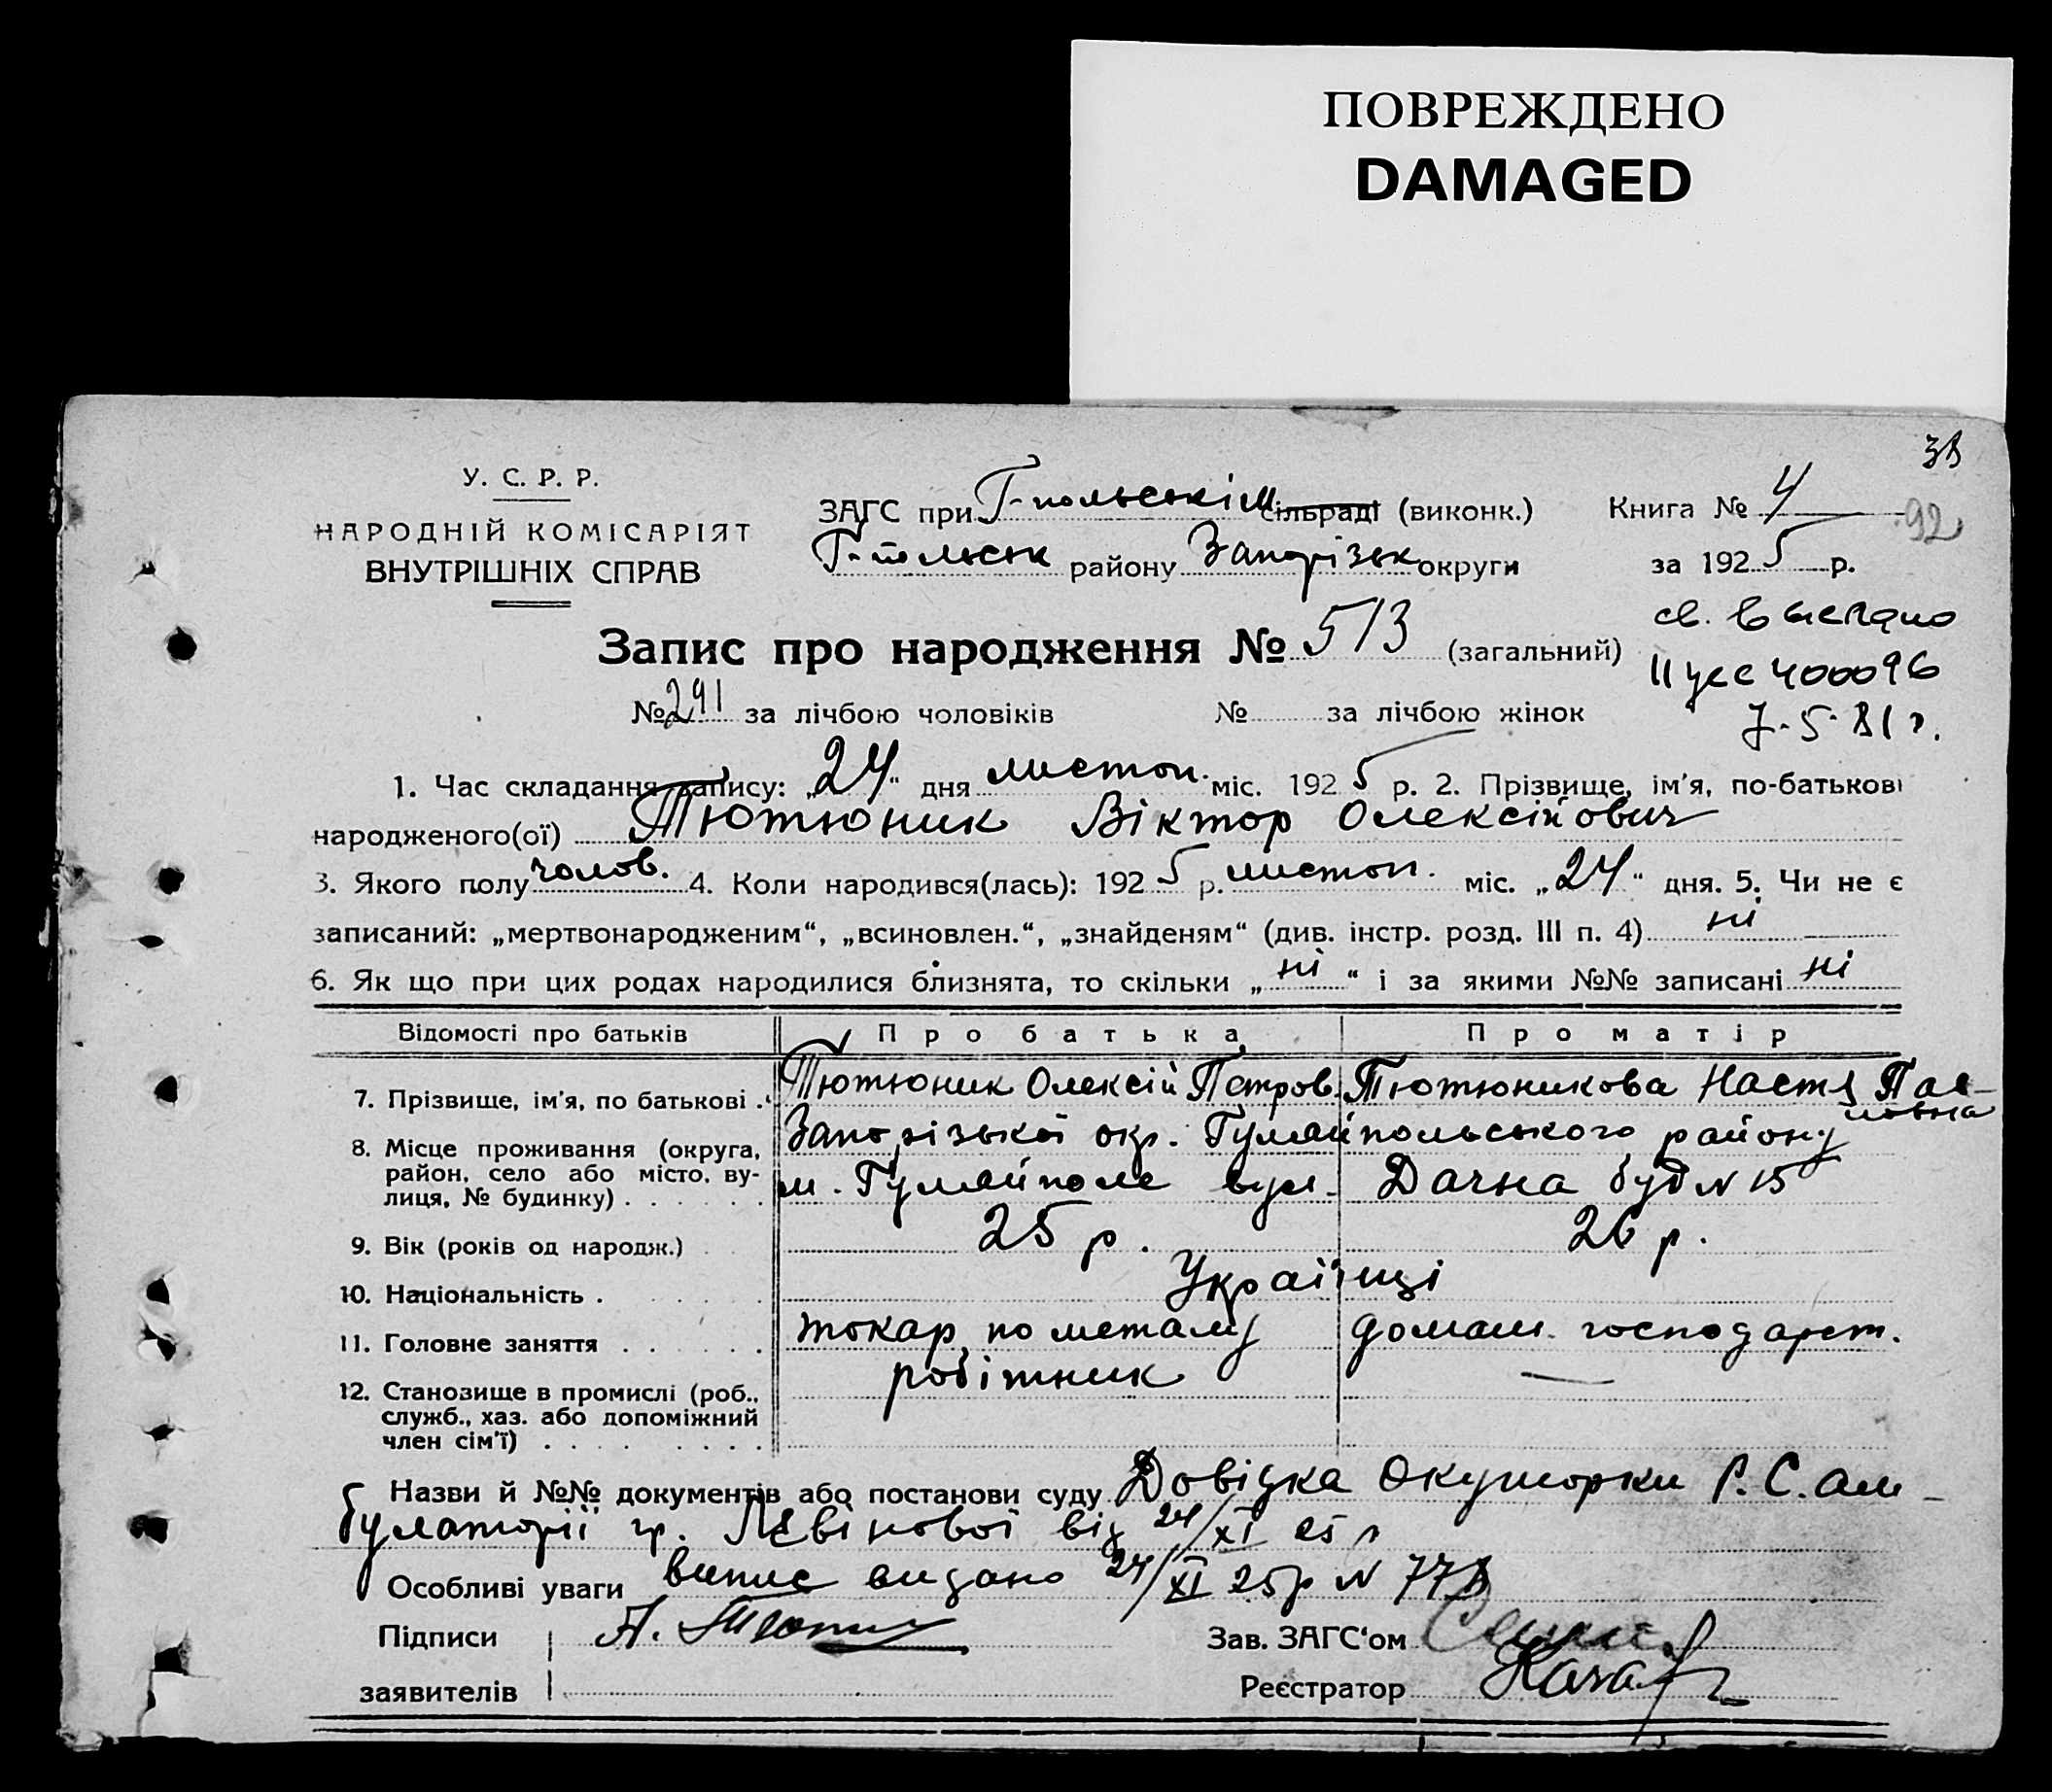 ПОВРЕЖДЕНО
DAMAGED
38
92
У. С. Р. Р.
НАРОДНІЙ КОМІСАРІЯТ
ВНУТРІШНІХ СПРАВ
ЗАГС при Г-польськім сільраді (виконк.) Книга № 4
Г-польськ району Запорізьк округи за 1925 р.
св. выслано
II УСС 400096
7.5.81 г.
Запис про народження № 513 (загальний)
№ 291 за лічбою чоловіків № за лічбою жінок
1. Час складання запису: „24“ дня листоп. міс. 1925 р. 2. Прізвище, ім'я, по-батькові
народженого(ої) Тютюник Віктор Олексійович
3. Якого полу чолов. 4. Коли народився(лась): 1925 р. листоп. міс. „24“ дня. 5. Чи не є
записаний: „мертвонародженим“, „всиновлен.“, „знайденям“ (див. інстр. розд. III п. 4) ні
6. Як що при цих родах народилися близнята, то скільки „ні“ і за якими №№ записані ні
Відомості про батьків Про батька Про матір
7. Прізвище, ім'я, по батькові . Тютюник Олексій Петров. Тютюникова Настя Пав-
ловна
8. Місце проживання (округа, район, село або місто, ву-
лиця, № будинку) . . . . . .
Запорізької окр. Гуляйпольського району
м. Гуляйполе вул. Дачна буд N 15
9. Вік (років од народж.) 25 р. 26 р.
10. Національність . Українці
11. Головне заняття . . . . . . токар по металу домаш. господарст.
12. Становище в промислі (роб.,
служб., хаз. або допоміжний
член сім'ї) . . . . . . . .
робітник —
Назви й №№ документів або постанови суду Довідка Акушорки Р. С. ам-
булаторії гр. Левінової від 24/XI 25 р
Особливі уваги випис видано 24/XI 25р N 778
Підписи А. Тютюн Зав. ЗАГС'ом
заявителів Реєстратор